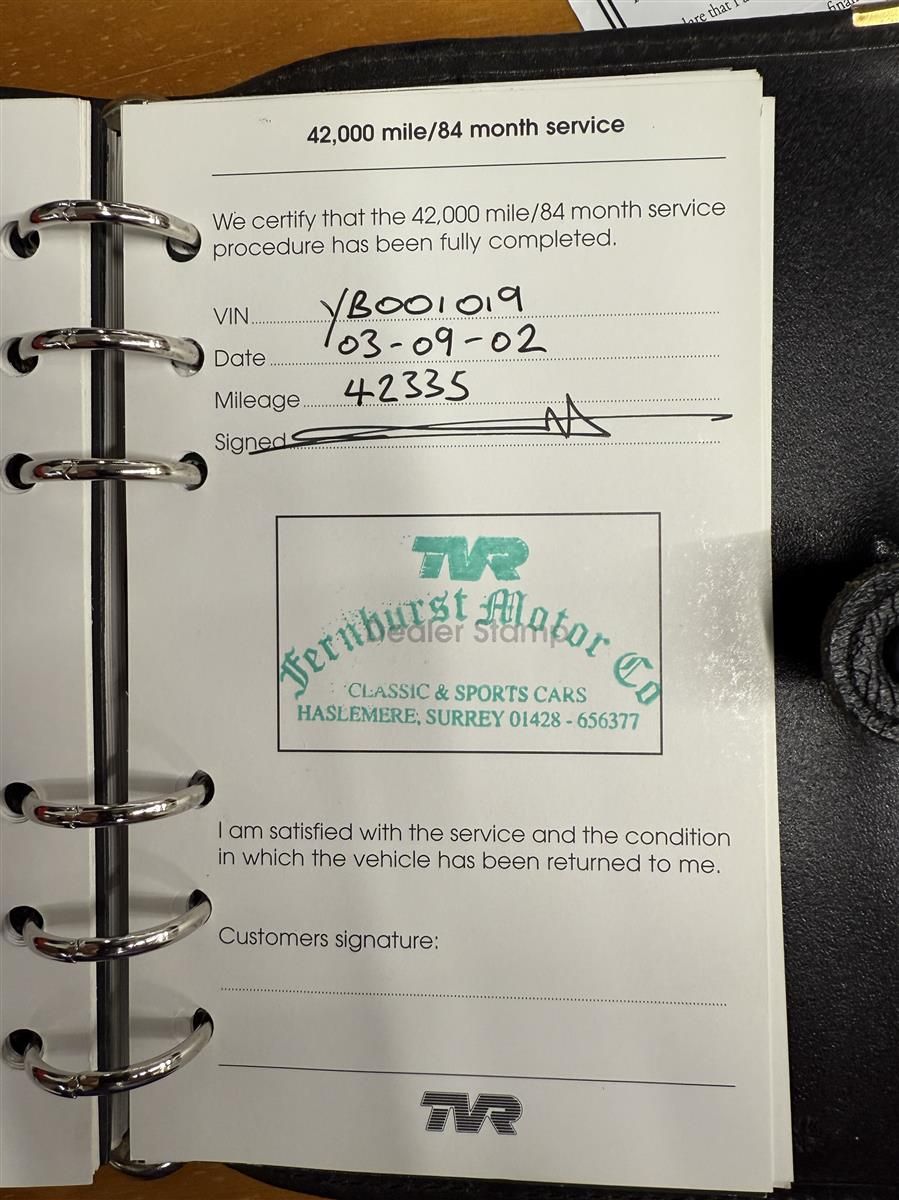 are that I
fina
42,000 mile/84 month service
We certify that the 42,000 mile/84 month service
procedure has been fully completed.
VIN YB001019
Date 03-09-02
Mileage 42335
Signed
TVR
Fernhurst Motor Co
Dealer Stamp
CLASSIC & SPORTS CARS
HASLEMERE, SURREY 01428 - 656377
I am satisfied with the service and the condition
in which the vehicle has been returned to me.
Customers signature:
TVR